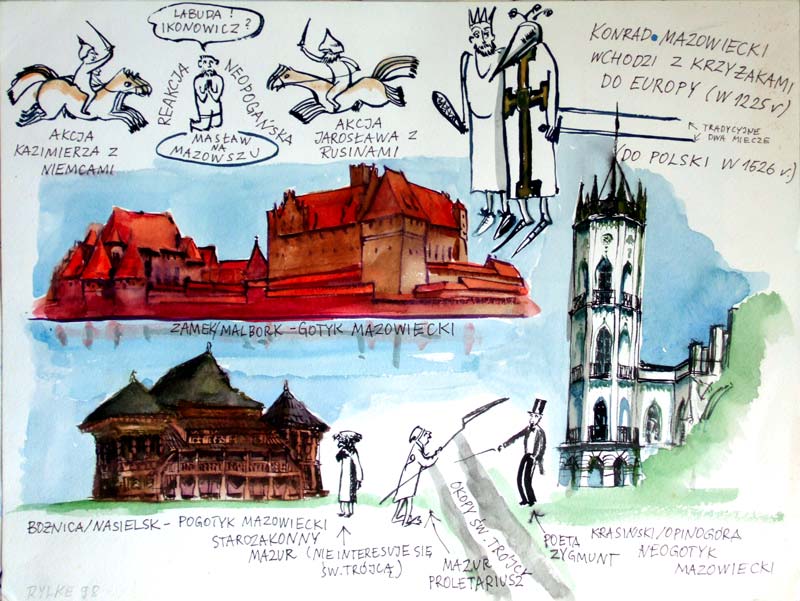 LABUDA?
IKONOWICZ?
REAKCJA
NEOPOGAŃSKA
MASŁAW
NA
MAZOWSZU
AKCJA
KAZIMIERZA Z
NIEMCAMI
AKCJA
JAROSŁAWA Z
RUSINAMI
KONRAD MAZOWIECKI
WCHODZI Z KRZYŻAKAMI
DO EUROPY (W 1225 r)
TRADYCYJNE
DWA MIECZE
(DO POLSKI W 1526 r.)
ZAMEK/MALBORK - GOTYK MAZOWIECKI
BOŻNICA/NASIELSK - POGOTYK MAZOWIECKI
STAROZAKONNY
MAZUR (NIE INTERESUJE SIĘ
ŚW. TRÓJCĄ)
MAZUR
PROLETARIUSZ
OKOPY ŚW. TRÓJCY
POETA
ZYGMUNT
KRASIŃSKI/OPINOGÓRA
NEOGOTYK
MAZOWIECKI
RYLKE 98